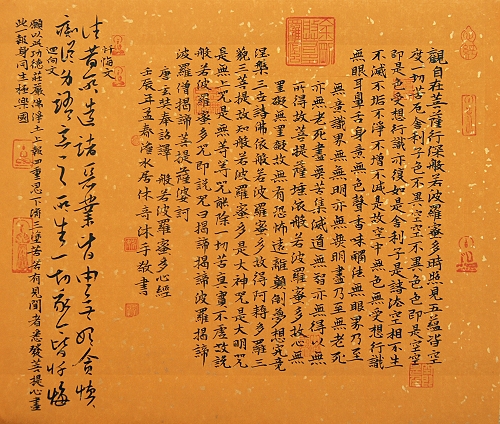 觀自在菩薩行深般若波羅蜜多時照見五蘊皆空
度一切苦厄舍利子色不異空空不異色色即是空空
即是色受想行識亦復如是舍利子是諸法空相不生
不滅不垢不淨不增不減是故空中無色無受想行識
無眼耳鼻舌身意無色聲香味觸法無眼界乃至
無意識界無無明亦無無明盡乃至無老死
亦無老死盡無苦集滅道無智亦無得以無
所得故菩提薩埵依般若波羅蜜多故心無
罣礙無罣礙故無有恐怖遠離顛倒夢想究竟
涅槃三世諸佛依般若波羅蜜多故得阿耨多羅三
藐三菩提故知般若波羅蜜多是大神咒是大明咒
是無上咒是無等等咒能除一切苦真實不虛故說
般若波羅蜜多咒即說咒曰揭諦揭諦波羅揭諦
波羅僧揭諦菩提薩婆訶
唐玄奘奉詔譯 般若波羅蜜多心經
壬辰年孟春 水居休奇沐手敬書
懺悔文
往昔所造諸惡業皆由無始貪嗔
癡從身語意之所生一切我今皆懺悔
回向文
願以此功德莊嚴佛淨土上報四重恩下濟三塗苦若有見聞者悉發菩提心盡
此一報身同生極樂國